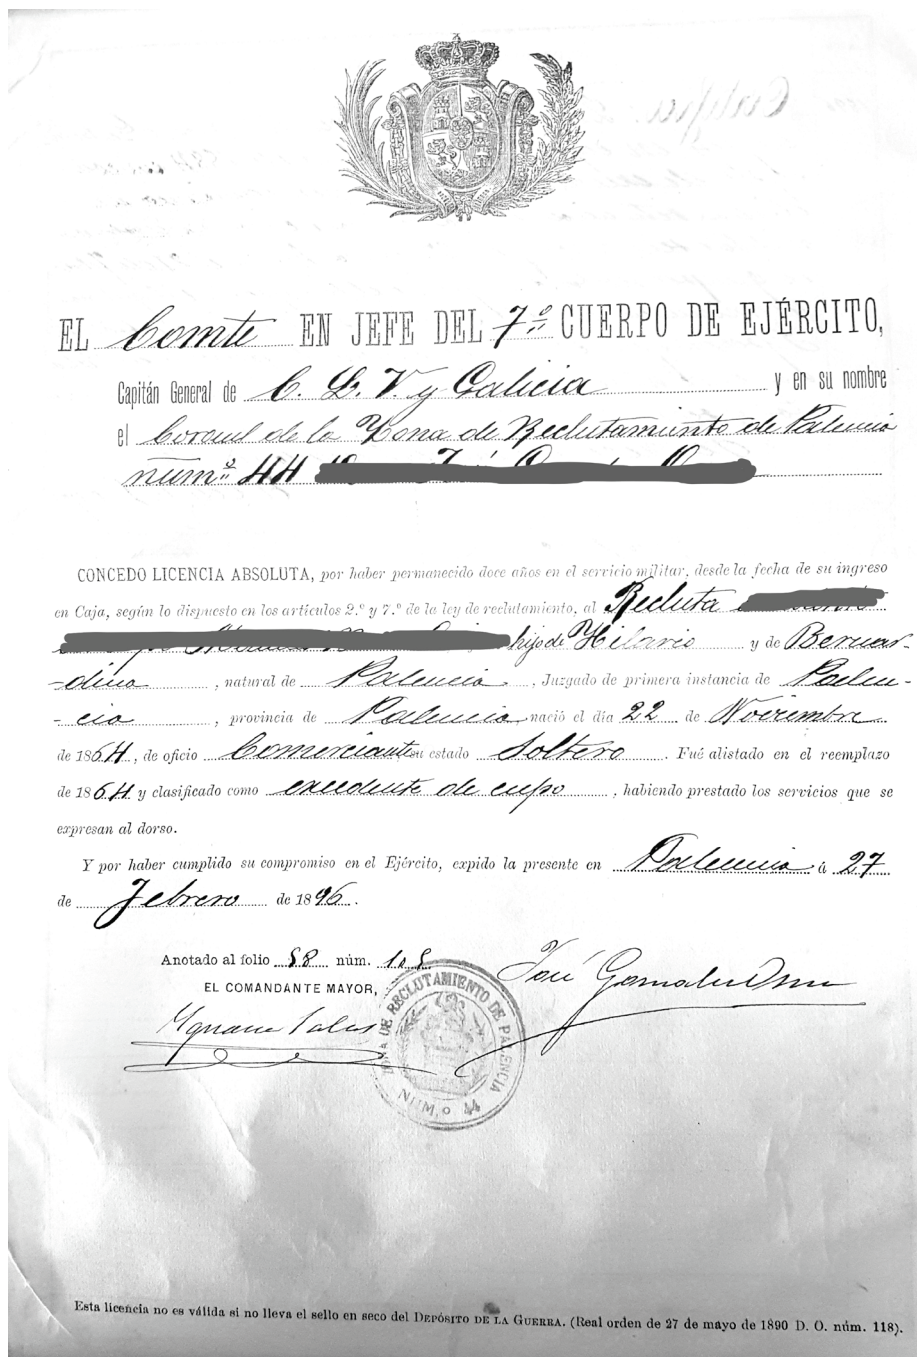 EL Comte EN JEFE DEL 7º CUERPO DE EJÉRCITO,
Capitán General de C. L. V. y Galicia y en su nombre
el Coronel de la Zona de Reclutamiento de Palencia
núm.º 44
CONCEDO LICENCIA ABSOLUTA, por haber permanecido doce años en el servicio militar, desde la fecha de su ingreso
en Caja, según lo dispuesto en los artículos 2.º y 7.º de la ley de reclutamiento, al Recluta
hijo de Hilario y de Bernar-
-dina, natural de Palencia, Juzgado de primera instancia de Palen-
-cia, provincia de Palencia nació el día 22 de Noviembre
de 1864, de oficio Comerciante su estado Soltero. Fué alistado en el reemplazo
de 1864 y clasificado como excedente de cupo, habiendo prestado los servicios que se
expresan al dorso.
Y por haber cumplido su compromiso en el Ejército, expido la presente en Palencia á 27
de Febrero de 1896.
Anotado al folio 58 núm. 105
EL COMANDANTE MAYOR,
José Gonzalez
ZONA DE RECLUTAMIENTO DE PALENCIA
NÚM.º 44
Esta licencia no es válida si no lleva el sello en seco del DEPÓSITO DE LA GUERRA. (Real orden de 27 de mayo de 1890 D. O. núm. 118).